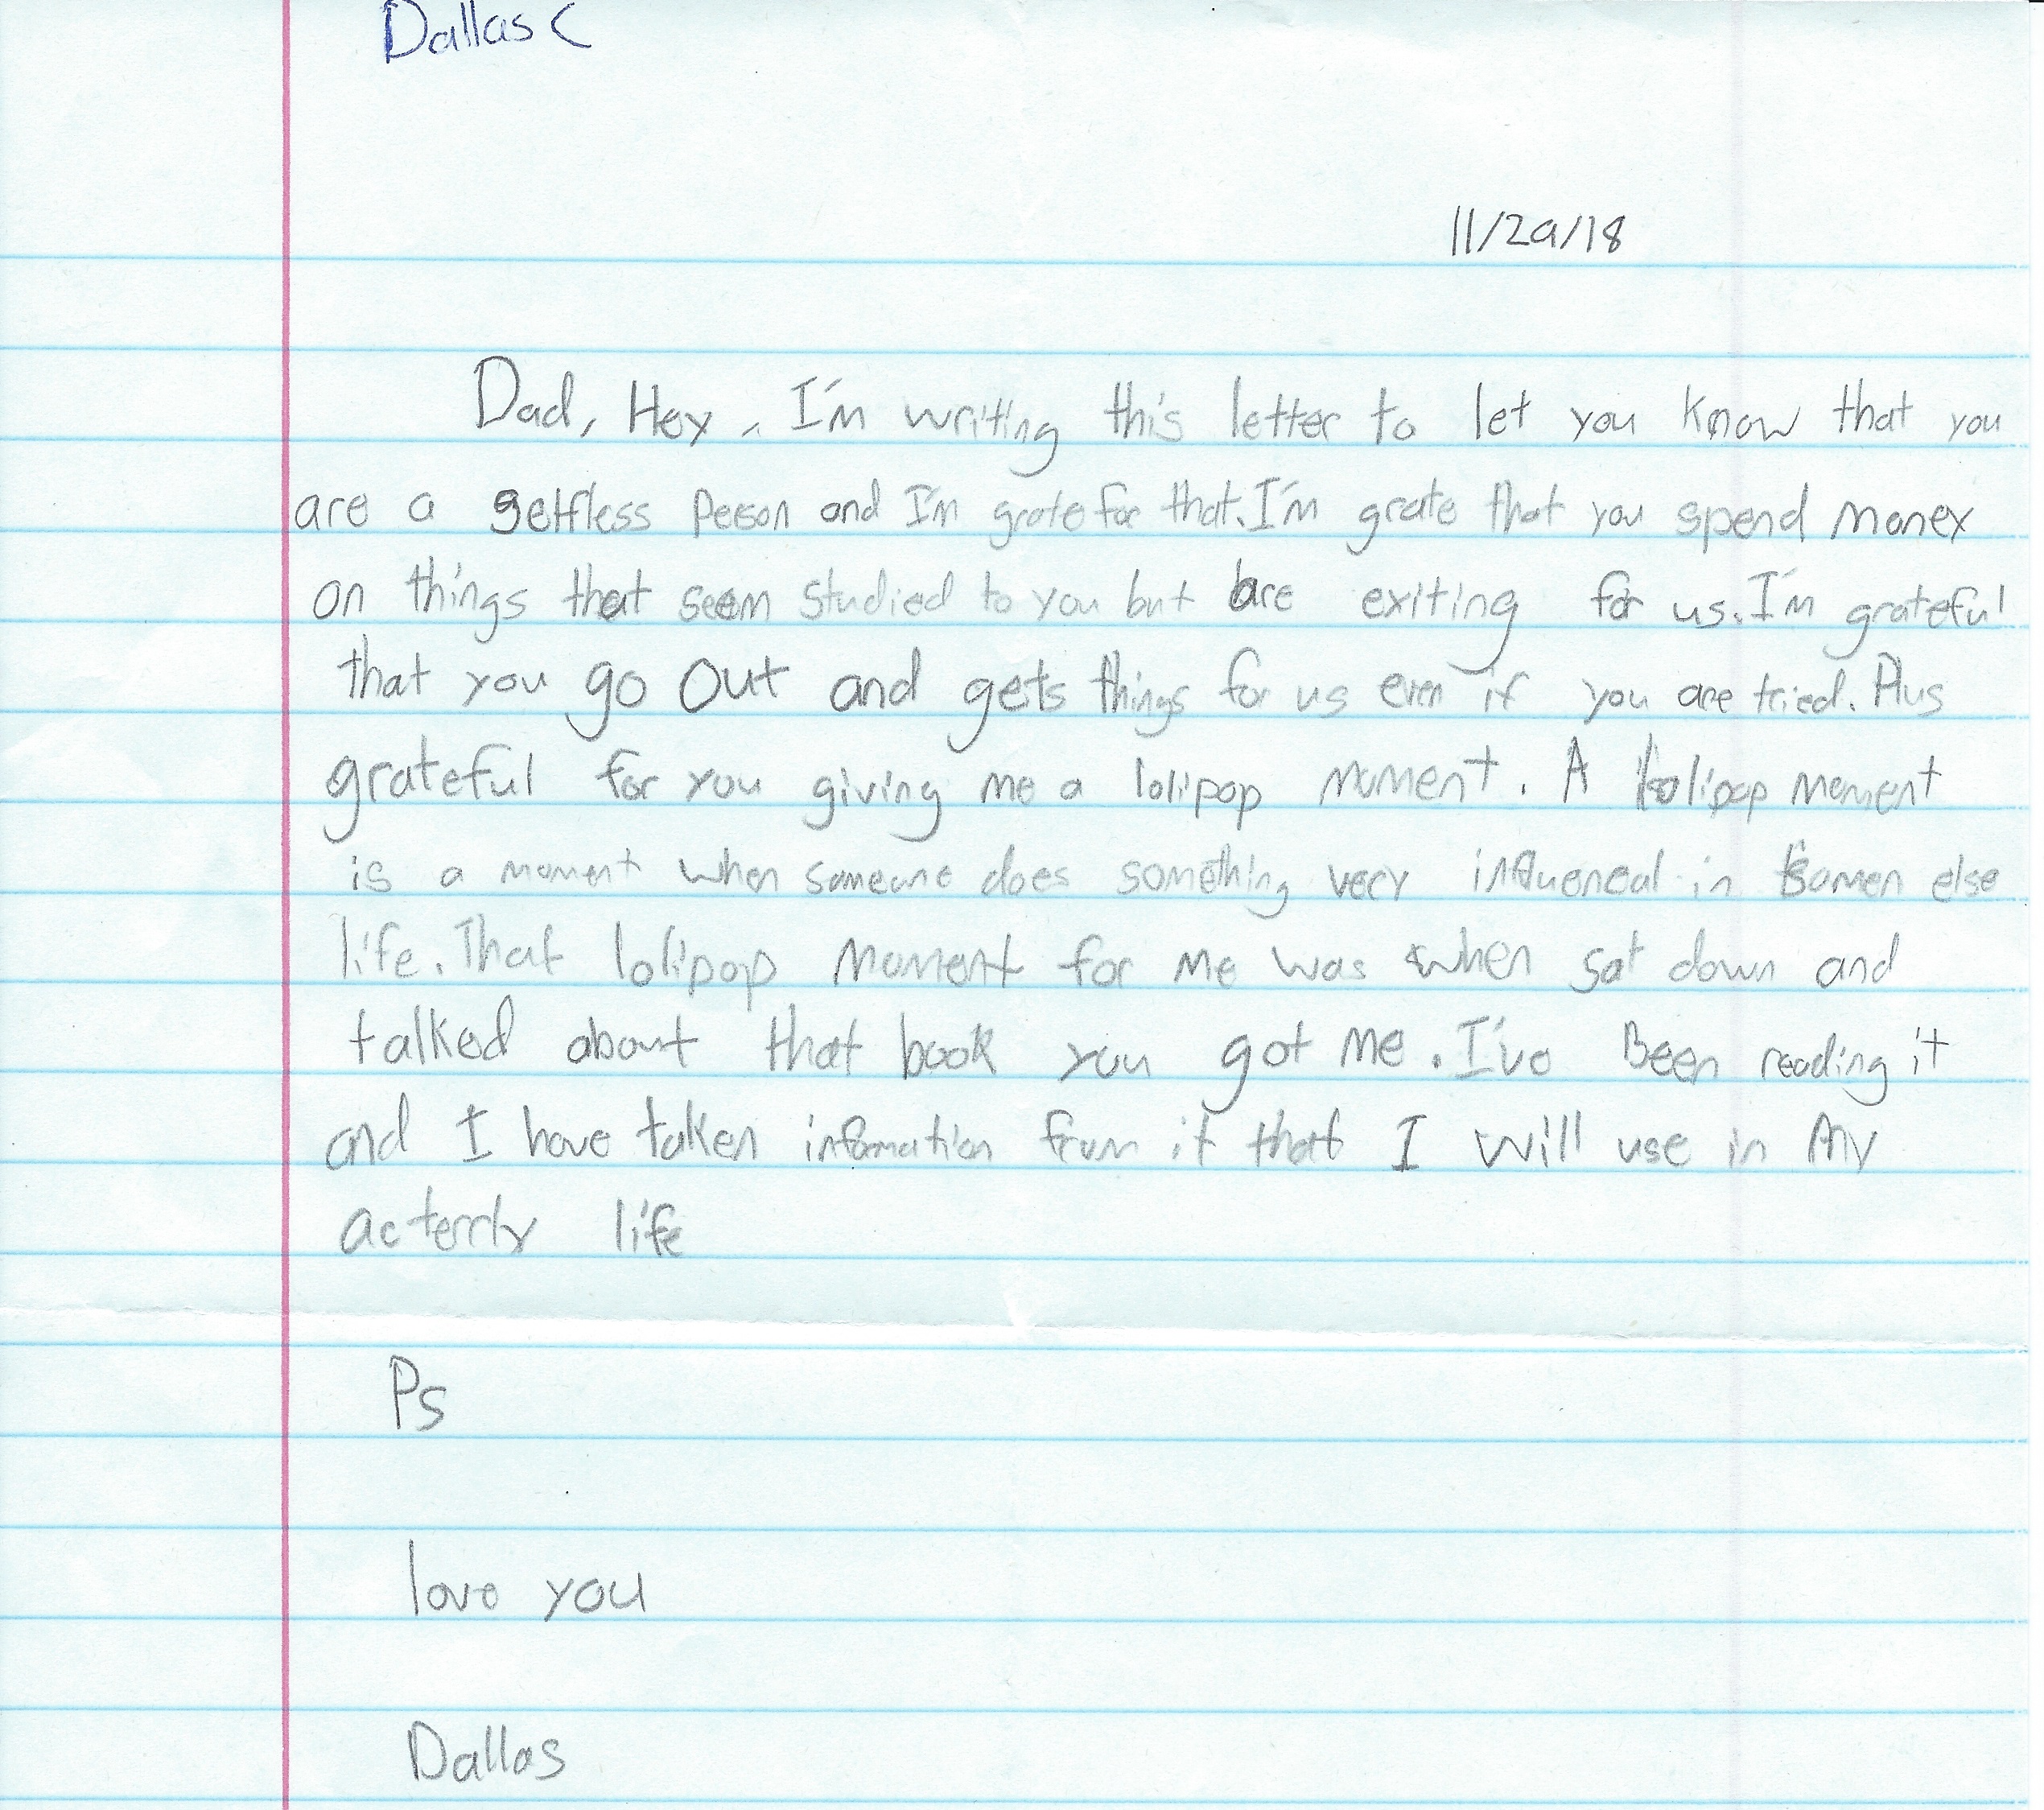 Dallas C
11/29/18
Dad, Hey, I'm writing this letter to let you know that you
are a selfless person and I'm grate for that. I'm grate that you spend money
on things that seem studied to you but are exiting for us. I'm grateful
that you go out and gets things for us even if you are tried. Plus
grateful for you giving me a lolipop moment. A lolipop moment
is a moment when someone does something very influencal in somen else
life. That lolipop moment for me was when sat down and
talked about that book you got me. I've Been reading it
and I have taken information from it that I will use in my
acterrly life
Ps
love you
Dallas